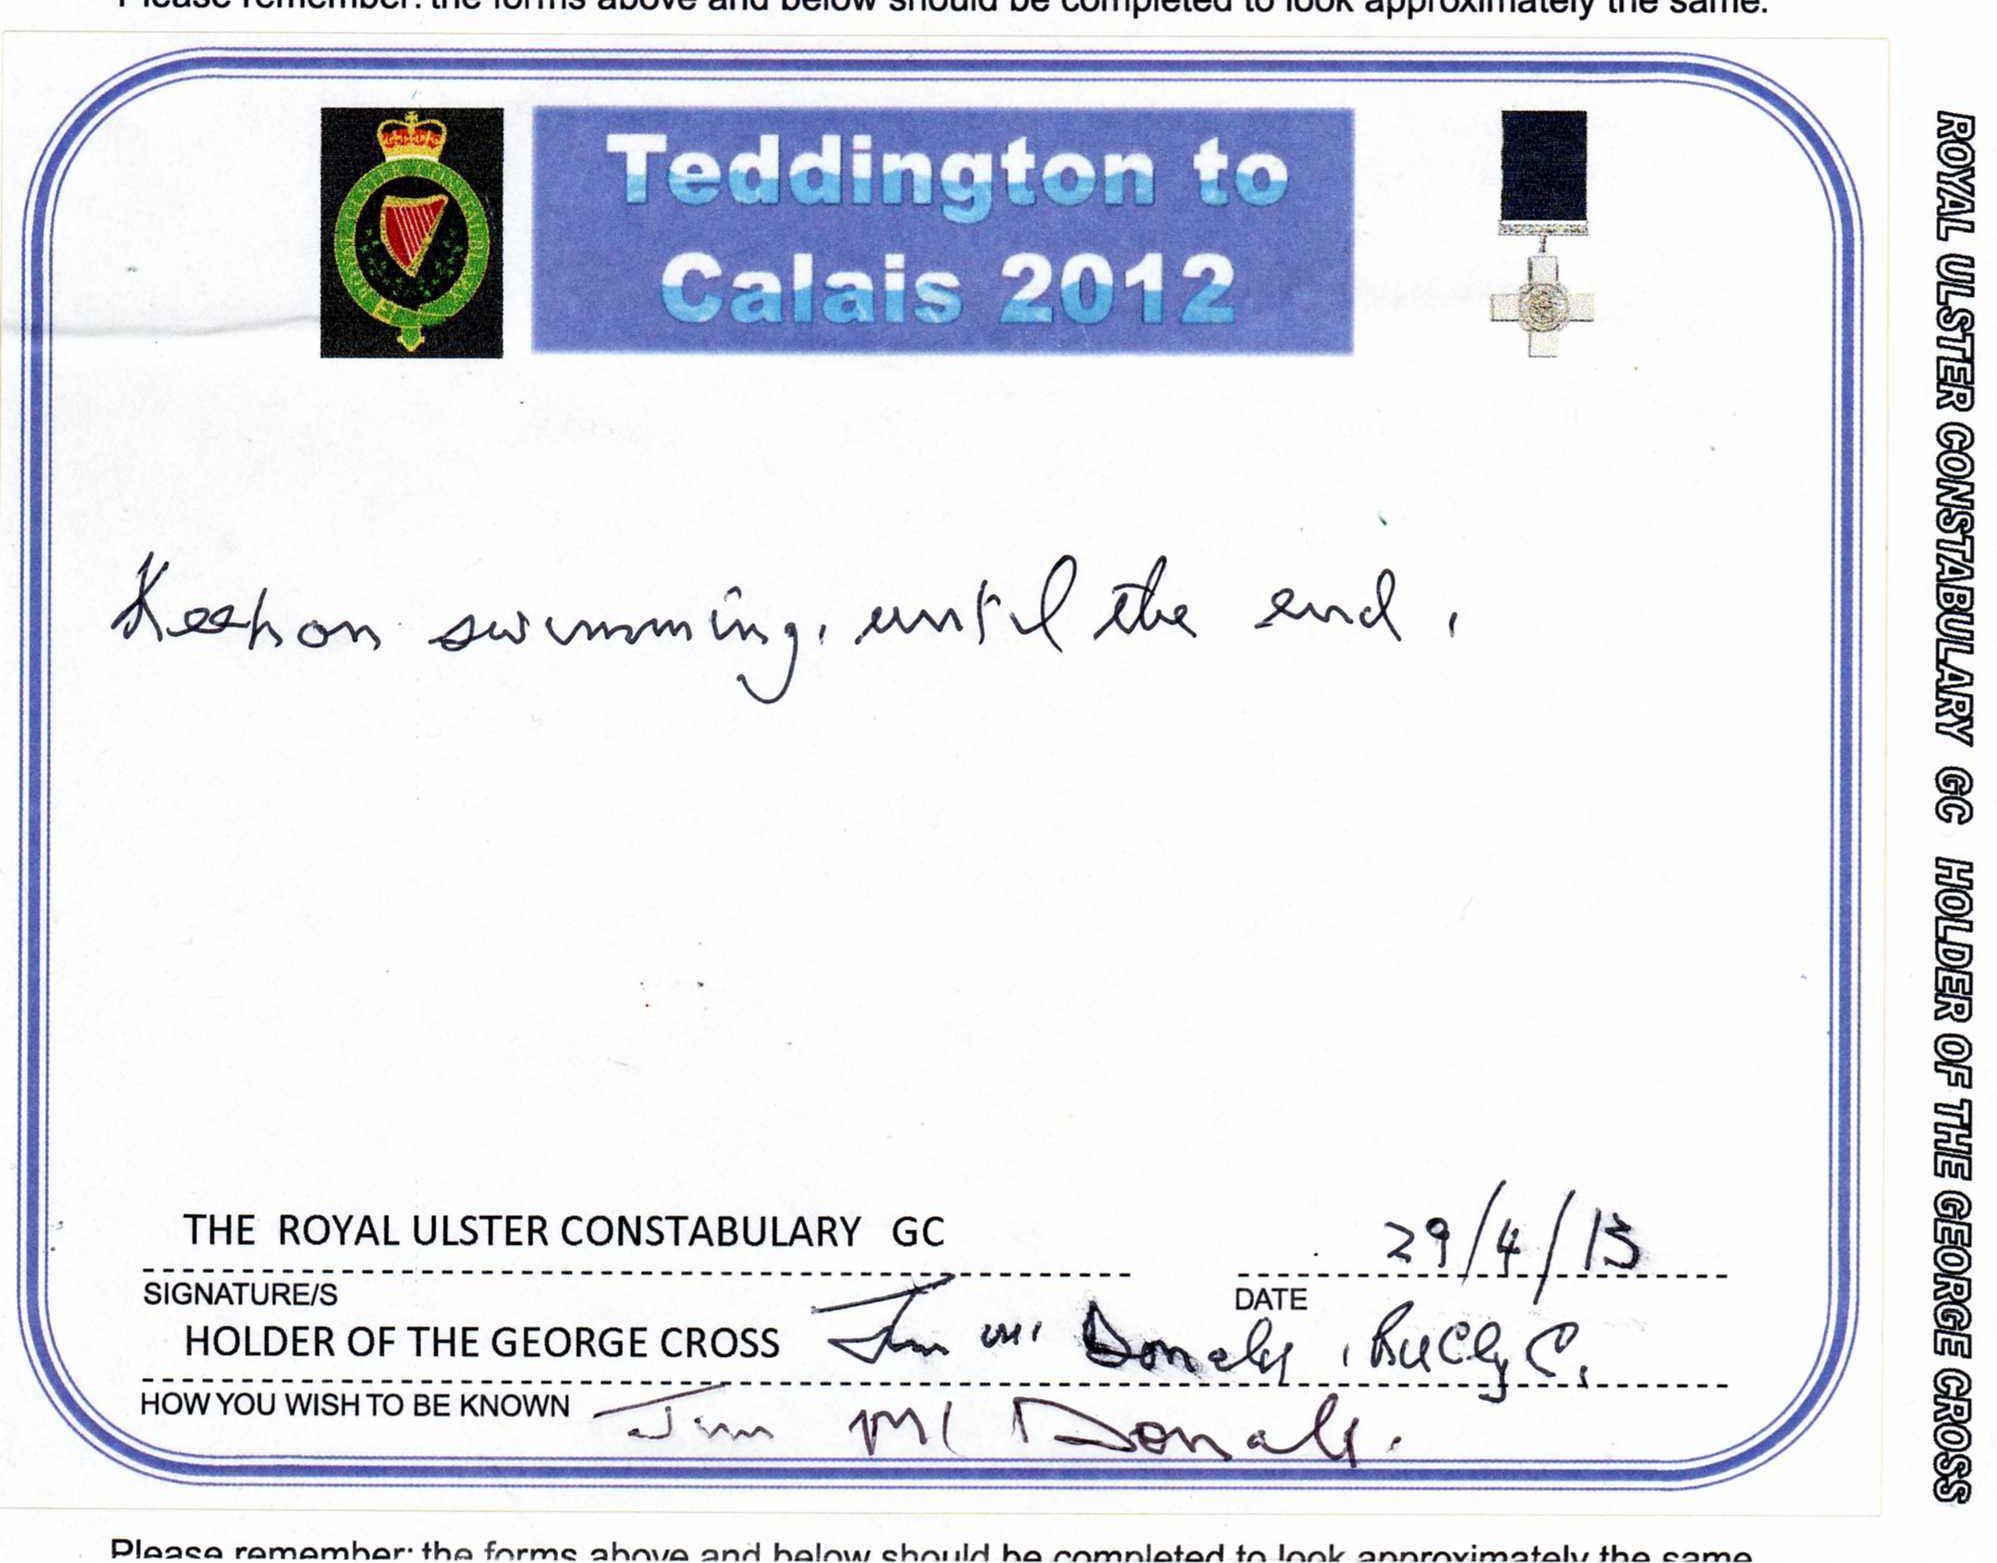 Please remember: the forms above and below should be completed to look approximately the same.
Teddington to
Calais 2012
Keep on swimming, until the end.
THE ROYAL ULSTER CONSTABULARY GC
29/4/13
SIGNATURE/S
DATE
HOLDER OF THE GEORGE CROSS Jim Mc Donald,
HOW YOU WISH TO BE KNOWN Jim Mc Donald.
Please remember: the forms above and below should be completed to look approximately the same
ROYAL ULSTER CONSTABULARY GC HOLDER OF THE GEORGE CROSS